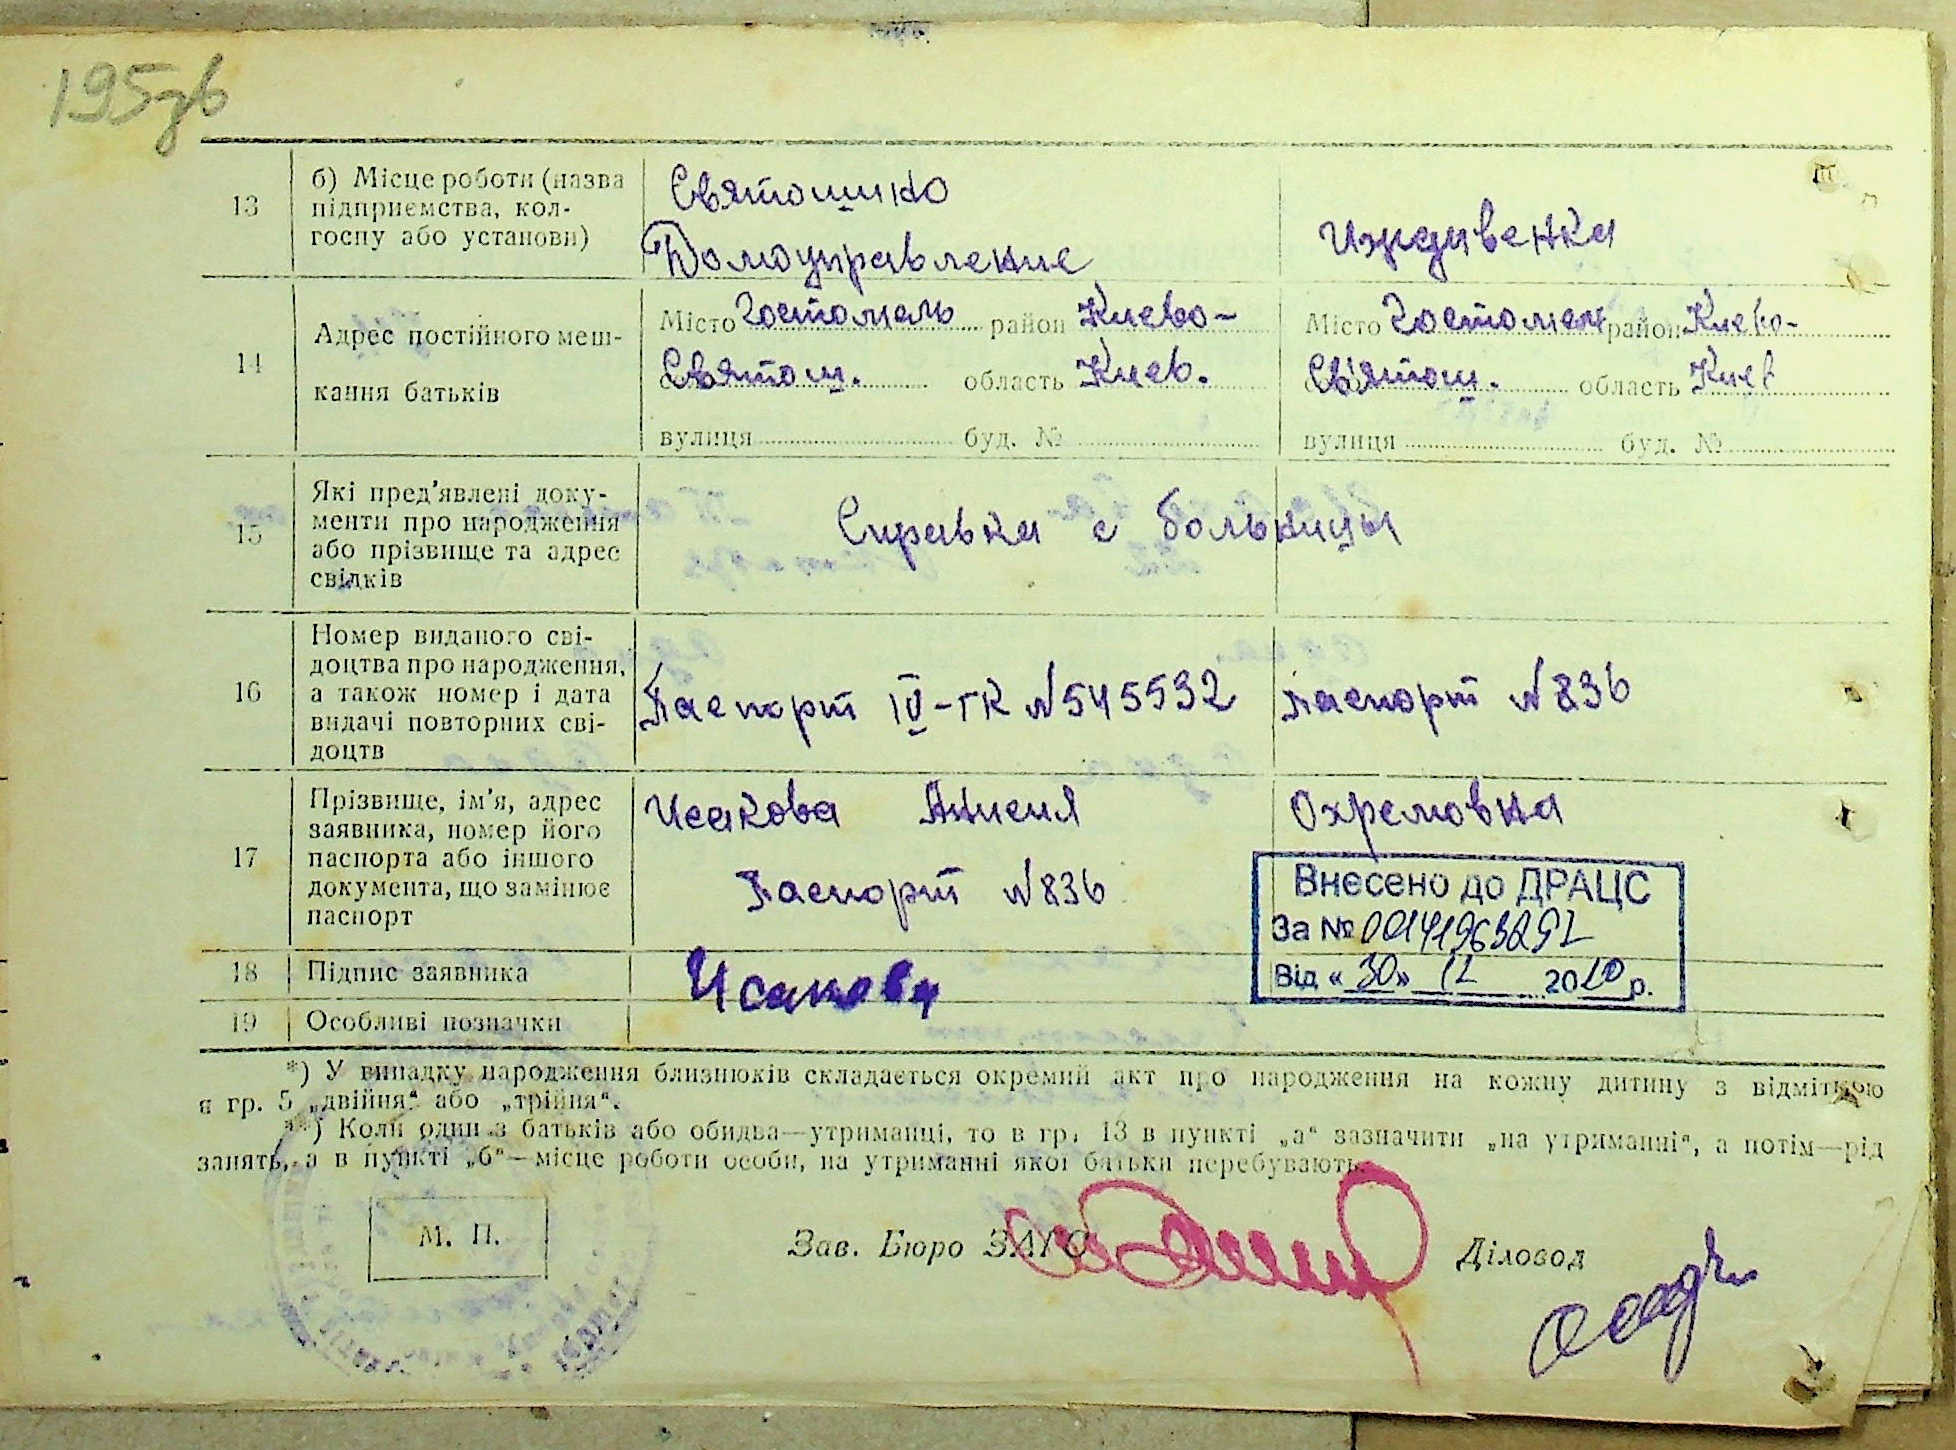 195зв
13
б) Місце роботи (назва
підприємства, кол-
госпу або установи)
Святошино
Домоуправление
Иждивенка
14
Адрес постійного меш-
кання батьків
Місто Гостомель район Киево-
Святош. область Киев.
вулиця буд. №
Місто Гостомель район Киево-
Святош. область Киев
вулиця буд. №
15
Які пред'явлені доку-
менти про народження
або прізвище та адрес
свідків
Справка с больницы
16
Номер виданого сві-
доцтва про народження,
а також номер і дата
видачі повторних сві-
доцтв
Паспорт IV-ГК №545532
Паспорт №836
17
Прізвище, ім'я, адрес
заявника, номер його
паспорта або іншого
документа, що замінює
паспорт
Исакова Анисия Охремовна
Паспорт №836
Внесено до ДРАЦС
За № 00141963292
Від «30» 12 2020 р.
18
Підпис заявника
Исакова
19
Особливі позначки
*) У випадку народження близнюків складається окремий акт про народження на кожну дитину з відміткою
в гр. 5 „двійня“ або „трійня“.
**) Коли один з батьків або обидва—утриманці, то в гр. 13 в пункті „а“ зазначити „на утриманні“, а потім—рід
занять, а в пункті „б“—місце роботи особи, на утриманні якої батьки перебувають.
М. П.
Зав. Бюро ЗАГС
Діловод